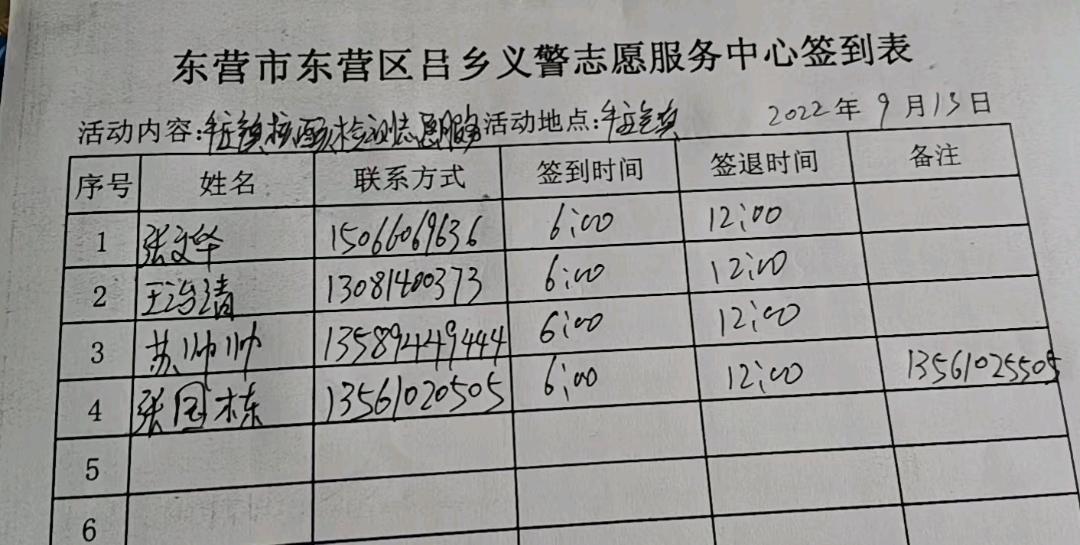 东营市东营区吕乡义警志愿服务中心签到表
活动内容:牛庄镇核酸检测志愿服务 活动地点:牛庄镇 2022年9月13日
序号 姓名 联系方式 签到时间 签退时间 备注
1 张文华 15066069636 6:00 12:00
2 王清 13081400373 6:00 12:00
3 苏帅帅 13589449444 6:00 12:00
4 张国栋 13561020505 6:00 12:00 13561025505
5
6